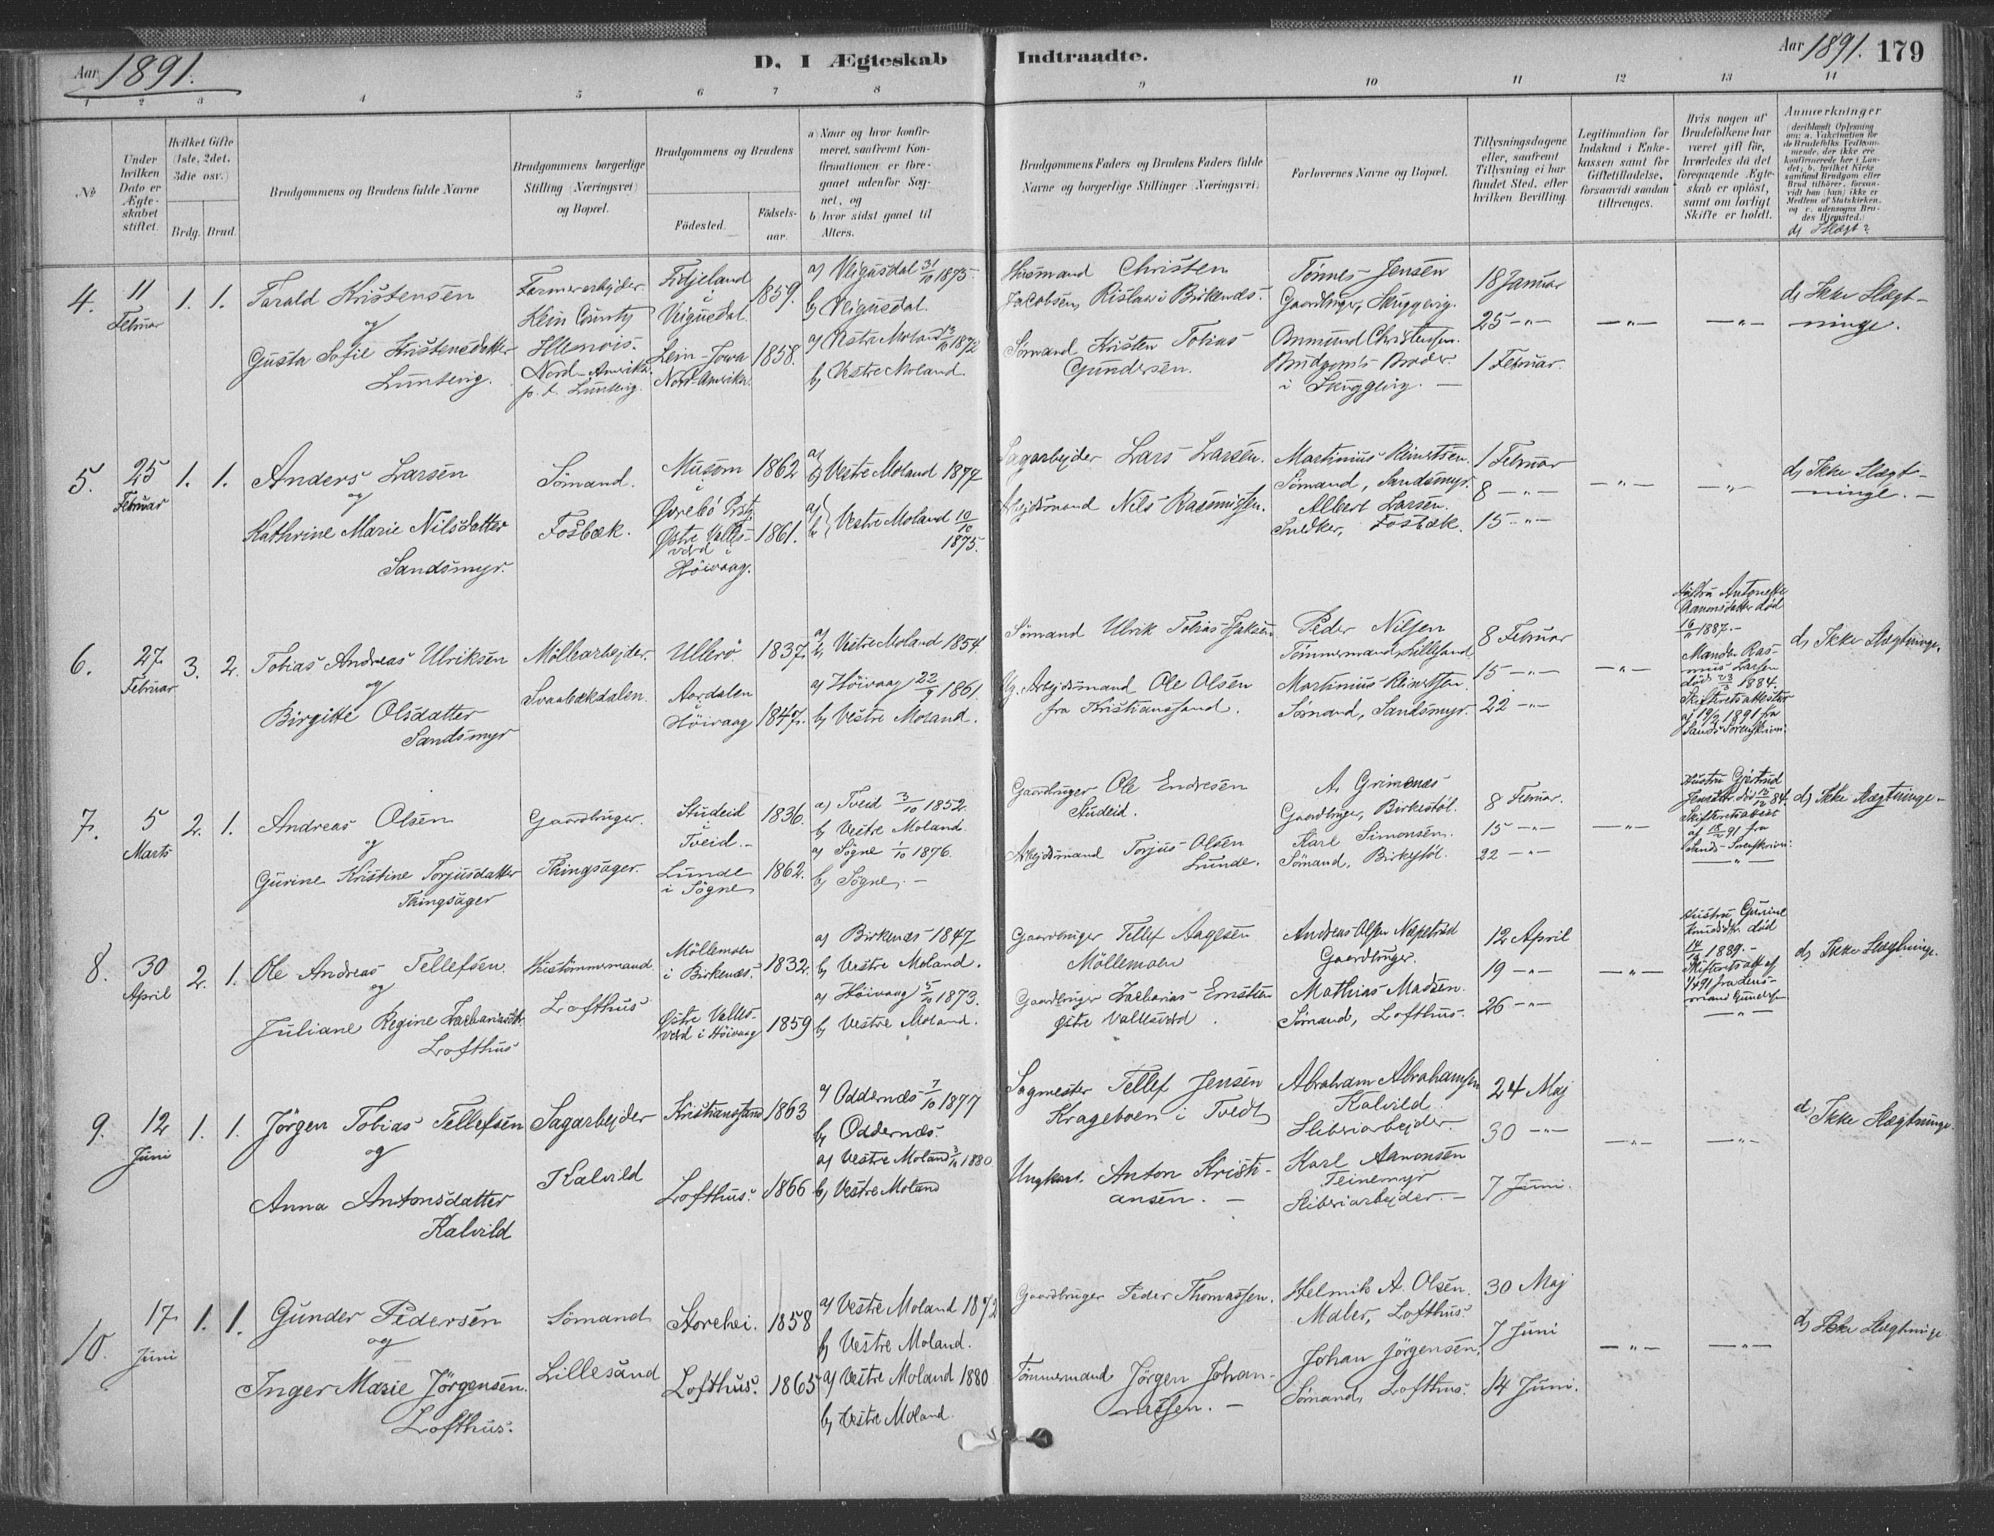 Aar 1891.
D. I Ægteskab Indtraadte.
Aar 1891. 179
1 2 3 4 5 6 7 8 9 10 11 12 13 14
No
Under hvilken Dato er Ægteskabet stiftet.
Hvilket Gifte (1ste, 2det, 3die osv.)
Brdg. Brud.
Brudgommens og Brudens fulde Navne
Brudgommens borgerlige Stilling (Næringsvei) og Bopæl.
Brudgommens og Brudens
Fødested. Fødselsaar.
a) Naar og hvor konfirmeret, samt om Konfirmationen er foregaaet udenfor Sognet, og
b) hvor sidst ganet til Alters.
Brudgommens Faders og Brudens Faders fulde Navne og borgerlige Stillinger (Næringsvei)
Forlovernes Navne og Bopæl.
Tillysningsdagene eller, saafremt Tillysning ei har fundet Sted, efter hvilken Bevilling.
Legitimation for Indskud i Enkekassen samt for Giftetilladelse, forsaavidt saadan tiltrænges.
Hvis nogen af Brudefolkene har været gift før, hvorledes da det foregaaende Ægteskab er opløst, samt om lovligt Skifte er holdt.
Anmærkninger
d) Slægt?
4. 11 Februar 1. 1.
Tarald Kristensen
og
Gusta Sofie Kristensdatter
Luntevig.
Farmerarbejder
Kein County
Illenois.
Nord-Amerika.
p. t. Luntevig.
Fitjeland
i
Vegusdal. 1859.
Lein-Iowa 1858.
Nord-Amerika.
a) Vegusdal 31/10 1875.
b) Vegusdal.
a) Vestre Moland 13/10 1872
b) Vestre Moland.
Husmand Christen
Jacobsen, Rislaa i Birkenæs.
Sømand Kristen Tobias
Gundersen.
Tønnes Jensen
Gaardbruger, Skuggevig.
Ommund Christensen.
Brudgom's Broder
i Skuggevig. —
18 Januar
25 —"—
1 Februar.
—"— —"—
d) Ikke Slægt-
ninge.
5. 25 Februar 1. 1.
Anders Larsen
og
Kathrine Marie Nilsdatter
Sandsmyr.
Sømand.
Fosbæk.
Musom 1862
i
Øvrebø Pst.
Østre Valles-
verd i 1861.
Höivaag.
a)
b) Vestre Moland 1877
a)
b) Vestre Moland 10/10
1875.
Sagarbejder Lars Larsen.
Arbejdsmand Nils Rasmussen.
Martinius Reinertsen.
Sømand, Sandsmyr.
Albert Larsen.
Snedker, Fosbæk.
1 Februar
8 —"—
15 —"—
—"— —"—
d) Ikke Slægt-
ninge. —
6. 27. Februar 3. 2.
Tobias Andreas Ulriksen
og
Birgitte Olsdatter
Sandsmyr
Møllearbejder.
Svaabækdalen.
Ullerø. 1837.
Aardalen
i
Höivaag 1847.
a)
b) Vestre Moland 1854.
a) Höivaag 22/9 1861.
b) Vestre Moland.
Sømand Ulrik Tobias Isaksen
Ug. Arbejdsmand Ole Olsen
fra Kristianssand.
Peder Nilsen
Tømmermand, Lillesand
Martinius Reinertsen.
Sømand, Sandsmyr.
8 Februar
15 —"—
22 —"—
—"—
Hustru Antonette
Aanonsdatter død
1887. —
Manden Ras-
mus Larsen
død 23/3 1884.
Skifteretsattester
af 19/2 1891 fra
Sands Sorenskriveri.
d) Ikke Slægtninge.
7. 5 Marts 2. 1.
Andreas Olsen
og
Gurine Kristine Torjusdatter
Thingsager
Gaardbruger.
Thingsager.
Studeid 1836.
i
Tveid. —
Lunde 1862.
i Søgne
a) Tveid 3/10 1852.
b) Vestre Moland.
a) Søgne 1/10 1876.
b) Søgne. —
Gaardbruger Ole Endresen
Studeid.
Arbejdsmand Torjus Olsen
Lunde.
A. Grimenæs
Gaardbruger, Birkestøl.
Karl Simonsen.
Sømand, Birkestøl.
8 Februar.
15 —"—
22 —"—
—"—
Hustru Gjertrud
Skifteretsattest
fra
Sands Sorenskriveri:
—"—
d) Ikke Slægtninge. —
8. 30 April 2. 1.
Ole Andreas Tellefsen.
og
Juliane Regine Zachariasdtr.
Lofthus
Hustømmermand
Lofthus
Möllemoen
i Birkenæs. 1832.
Østre Valles-
verd i Höivaag 1859
a) Birkenæs 1847
b) Vestre Moland.
a) Höivaag 5/10 1873.
b) Vestre Moland.
Gaardbruger Tellef Aagesen
Möllemoen
Gaardbruger Zacharias Ernstsen
Østre Vallesverd.
Andreas Olsen Næpestad
Gaardbruger.
Mathias Madsen.
Sømand, Lofthus.
12 April
19 —"—
26 —"—
—"—
Hustru Gurine
død
1889. —
—"—
d) Ikke Slægtninge.
9. 12 Juni 1. 1.
Jörgen Tobias Tellefsen
og
Anna Antonsdatter
Kalvild
Sagarbejder
Kalvild
Kristianssand 1863
Lofthus. 1866
a) Oddernæs 7/10 1877
b) Oddernæs.
a) Vestre Moland 3/10 1880.
b) Vestre Moland
Sagmester Tellef Jensen
Krageboen i Tvedt
Ungkarl Anton Kristi-
ansen. —
Abraham Abrahamsen
Kalvild.
Sliberiarbejder.
Karl Aanonsen
Teinemyr
Sliberiarbejder —
24 Maj
30 —"—
7 Juni.
—"— —"—
d) Ikke Slægtninge
10. 17 Juni 1. 1.
Gunder Pedersen
og
Inger Marie Jörgensen.
Lofthus.
Sømand
Lillesand
Storehei. 1858
Lofthus. 1865
a) Vestre Moland 1872
b) Vestre Moland.
a) Vestre Moland 1880
b) Vestre Moland.
Gaardbruger Peder Thomassen.
Tømmermand Jörgen Johan-
nesen. —
Helmik A. Olsen.
Maler, Lofthus.
Johan Jörgensen.
Sømand, Lofthus.
30 Maj
7 Juni
14 Juni.
—"— —"—
d) Ikke Slægtninge